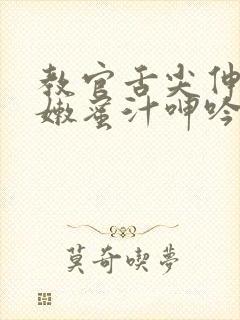 教官舌尖伸
嫩蜜汁呻吟
莫奇喫夢